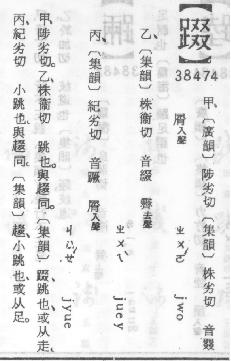 【踱】
38474
甲、〔廣韻〕陟劣切〔集韻〕株劣切 音輟
屑入聲 ㄓㄨㄛ jwo
乙、〔集韻〕株衞切 音綴 霽去聲
ㄓㄨㄟ juey
丙、〔集韻〕紀劣切 音蹶 屑入聲
ㄐㄩㄝ jyue
甲、陟劣切。乙、株衞切 跳也。與趨同。〔集韻〕踱、跳也、或从走、
丙、紀劣切 小跳也。與趨同。〔集韻〕趨、小跳也。或从足。